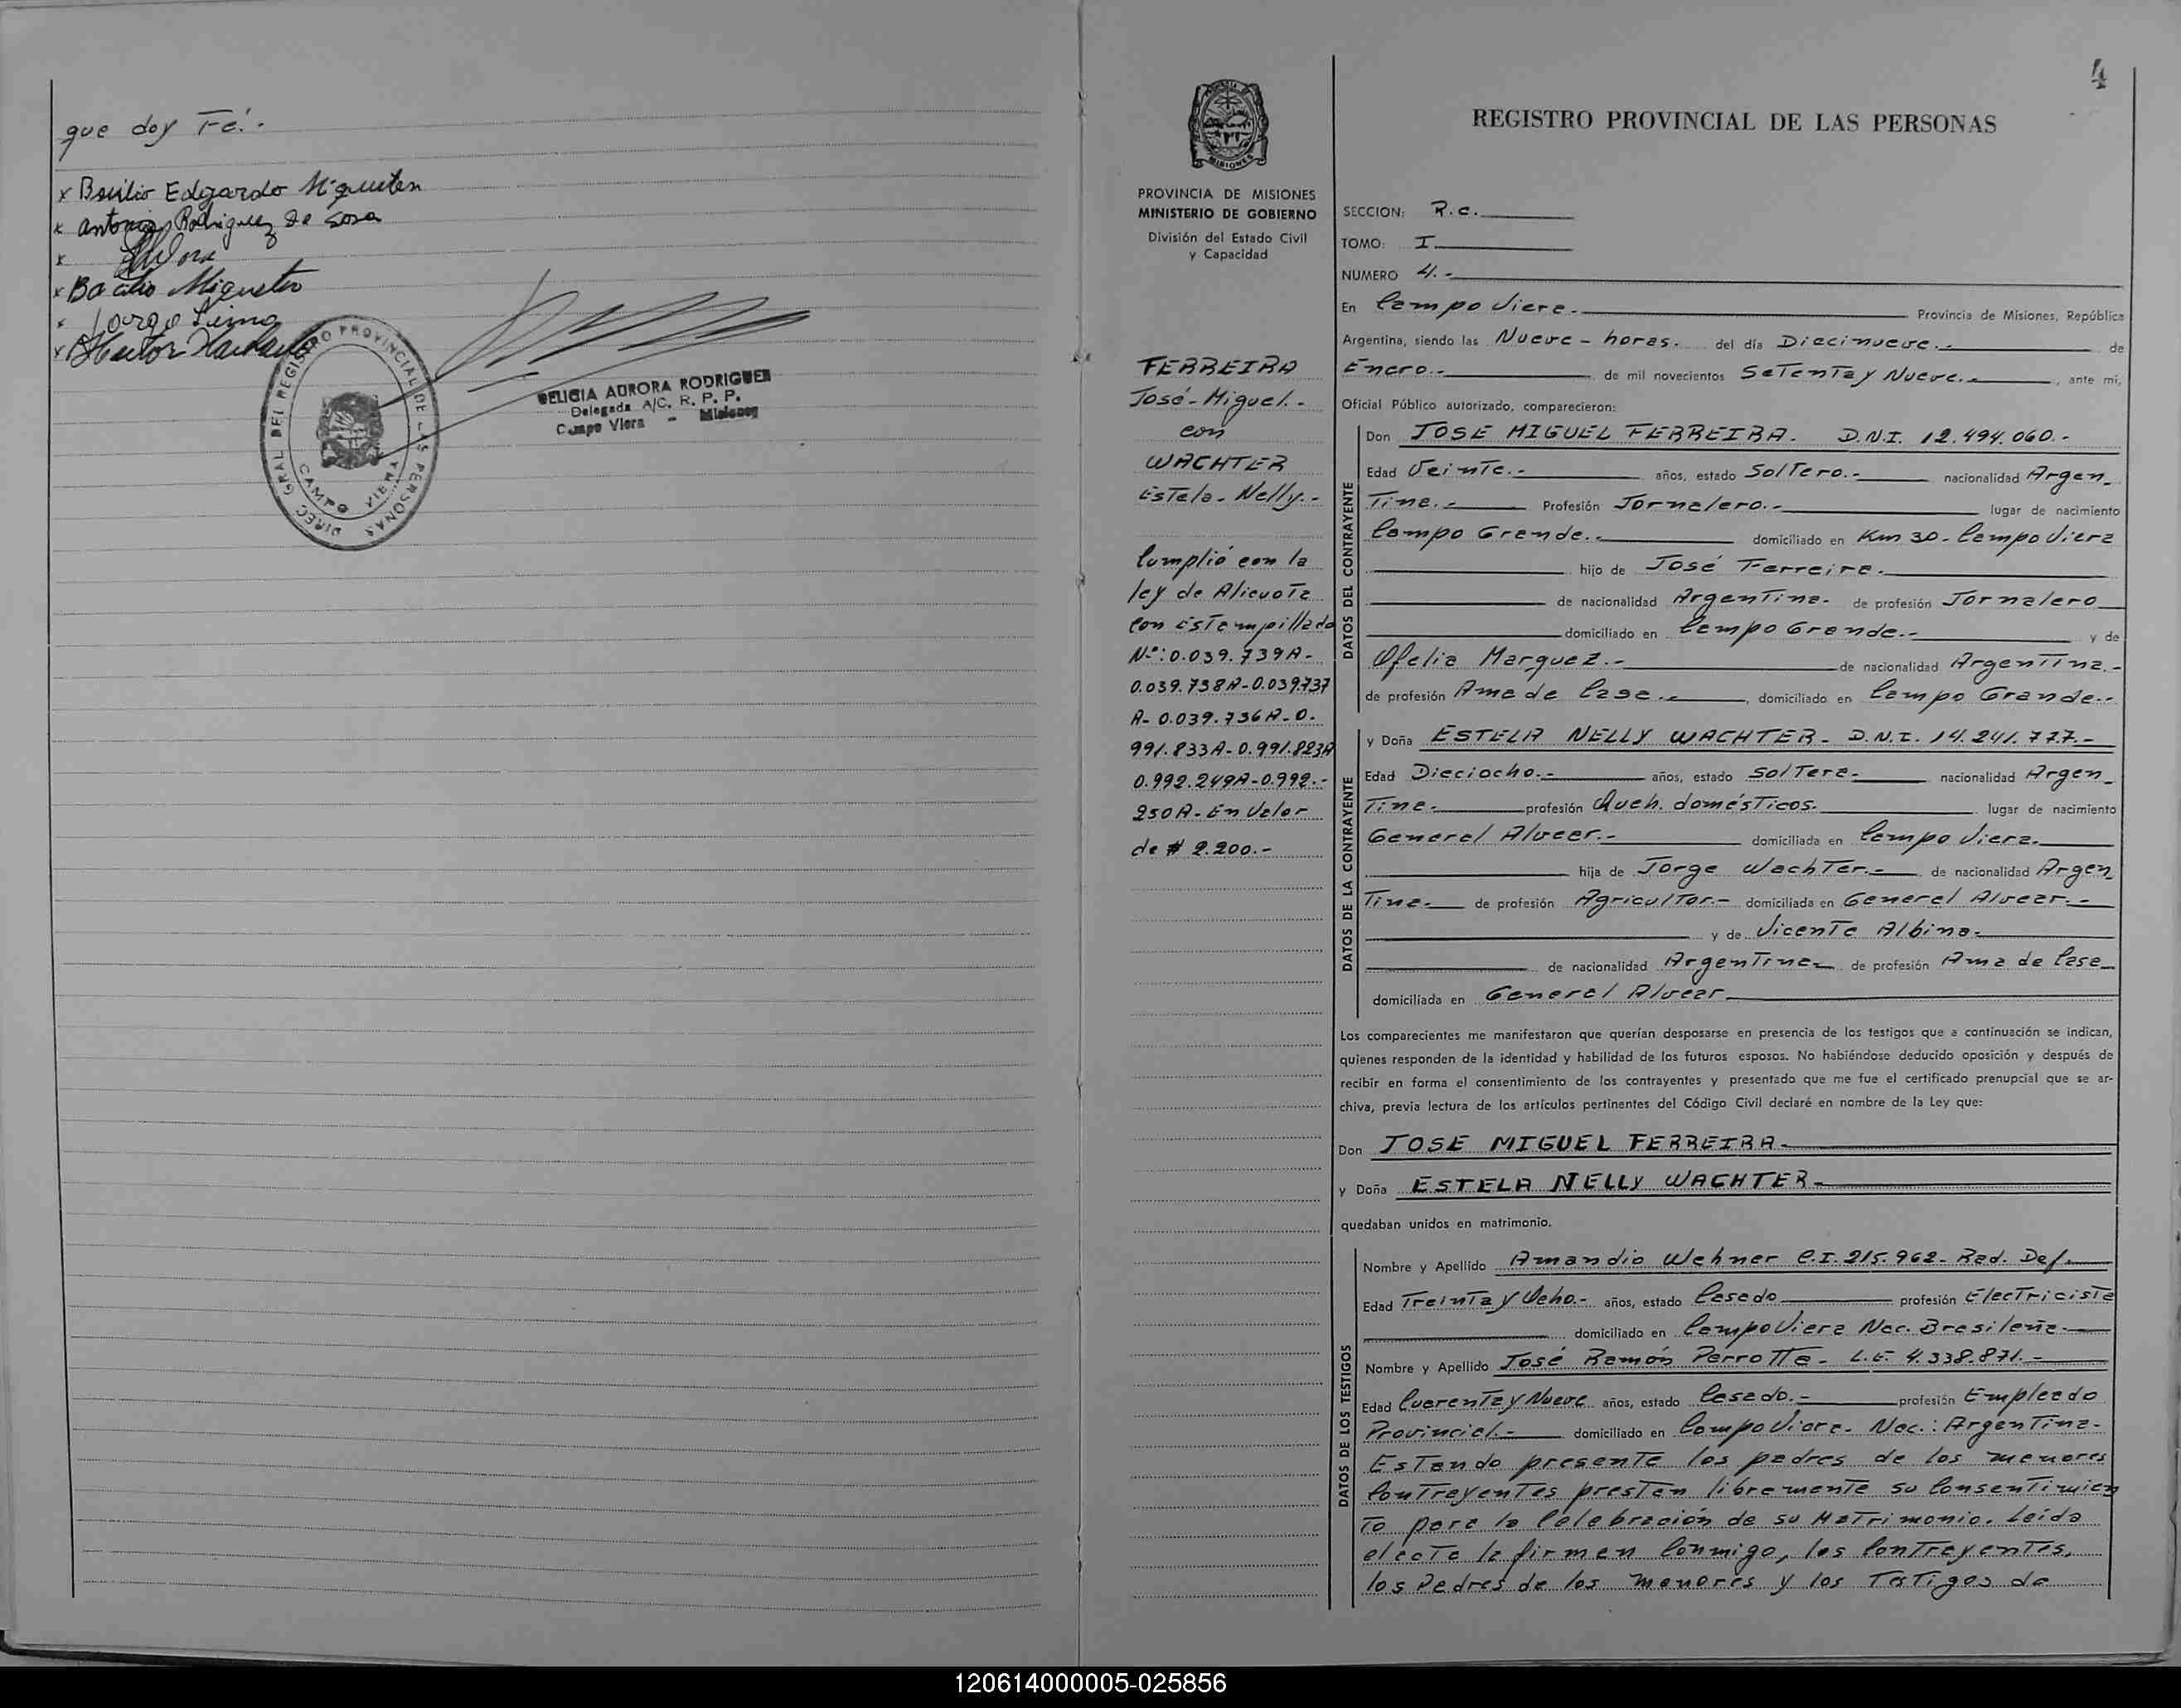 que doy Fé.-
x Basilio Edgardo Miguelten
x Antonia Rodriguez De Sosa
x
x Bacilio
x Jorge
x Hector
DIREC. GRAL DEL REGISTRO PROVINCIAL DE LAS PERSONAS
CAMPO VIERA
DELICIA AURORA RODRIGUEZ
Delegada A/C. R. P. P.
Campo Viera - Misiones
4
MISIONES
PROVINCIA DE MISIONES
MINISTERIO DE GOBIERNO
División del Estado Civil
y Capacidad
FERREIRA
José-Miguel.-
con
WACHTER
Estela-Nelly.-
Cumplió con la
ley de Alicuota
con Estampillado
Nº:0.039.739A-
0.039.738A-0.039.737
A-0.039.736A-0.
991.833A-0.991.823A
0.992.249A-0.992.-
250A-En Valor
de $ 2.200.-
REGISTRO PROVINCIAL DE LAS PERSONAS
SECCION: R.c.
TOMO: I
NUMERO 4.-
En Campo Viera.- Provincia de Misiones, República
Argentina, siendo las Nueve - horas. del día Diecinueve.- de
Enero.- de mil novecientos Setenta y Nueve.- , ante mi,
Oficial Público autorizado, comparecieron:
DATOS DEL CONTRAYENTE
Don JOSE MIGUEL FERREIRA. D.N.I. 12.494.060.-
Edad Veinte.- años, estado Soltero.- nacionalidad Argen_
tina.- Profesión Jornalero.- lugar de nacimiento
Campo Grande.- domiciliado en Km 30-Campo Viera
hijo de José Ferreira.
de nacionalidad Argentina- de profesión Jornalero
domiciliado en Campo Grande.- y de
Ofelia Marquez.- de nacionalidad Argentina.-
de profesión Ama de Casa.- , domiciliado en Campo Grande.-
DATOS DE LA CONTRAYENTE
y Doña ESTELA NELLY WACHTER- D.N.I. 14.241.777.-
Edad Dieciocho.- años, estado Soltera- nacionalidad Argen_
tina- profesión Queh. domésticos. lugar de nacimiento
General Alvear.- domiciliada en Campo Viera.
hija de Jorge Wachter.- de nacionalidad Argen_
tina- de profesión Agricultor.- domiciliada en General Alvear.-
y de Vicente Albino-
de nacionalidad Argentina- de profesión Ama de Casa
domiciliada en General Alvear
Los comparecientes me manifestaron que querían desposarse en presencia de los testigos que a continuación se indican,
quienes responden de la identidad y habilidad de los futuros esposos. No habiéndose deducido oposición y después de
recibir en forma el consentimiento de los contrayentes y presentado que me fue el certificado prenupcial que se ar-
chiva, previa lectura de los artículos pertinentes del Código Civil declaré en nombre de la Ley que:
Don JOSE MIGUEL FERREIRA-
y Doña ESTELA NELLY WACHTER-
quedaban unidos en matrimonio.
DATOS DE LOS TESTIGOS
Nombre y Apellido Amandio Wehner C.I. 215.962- Rad. Def.
Edad Treinta y Ocho.- años, estado Casado profesión Electricista
domiciliado en Campo Viera Nac. Brasileña-
Nombre y Apellido José Ramón Perrotta- L.E. 4.338.871.-
Edad Cuarenta y Nueve años, estado Casado.- profesión Empleado
Provincial.- domiciliado en Campo Viera- Nac.: Argentina-
Estando presente los padres de los menores
Contrayentes presten libremente su Consentimien
to para la Celebración de su Matrimonio. Leída
el acta la firman Conmigo, los Contrayentes,
los Padres de los menores y los Testigos de
120614000005-025856